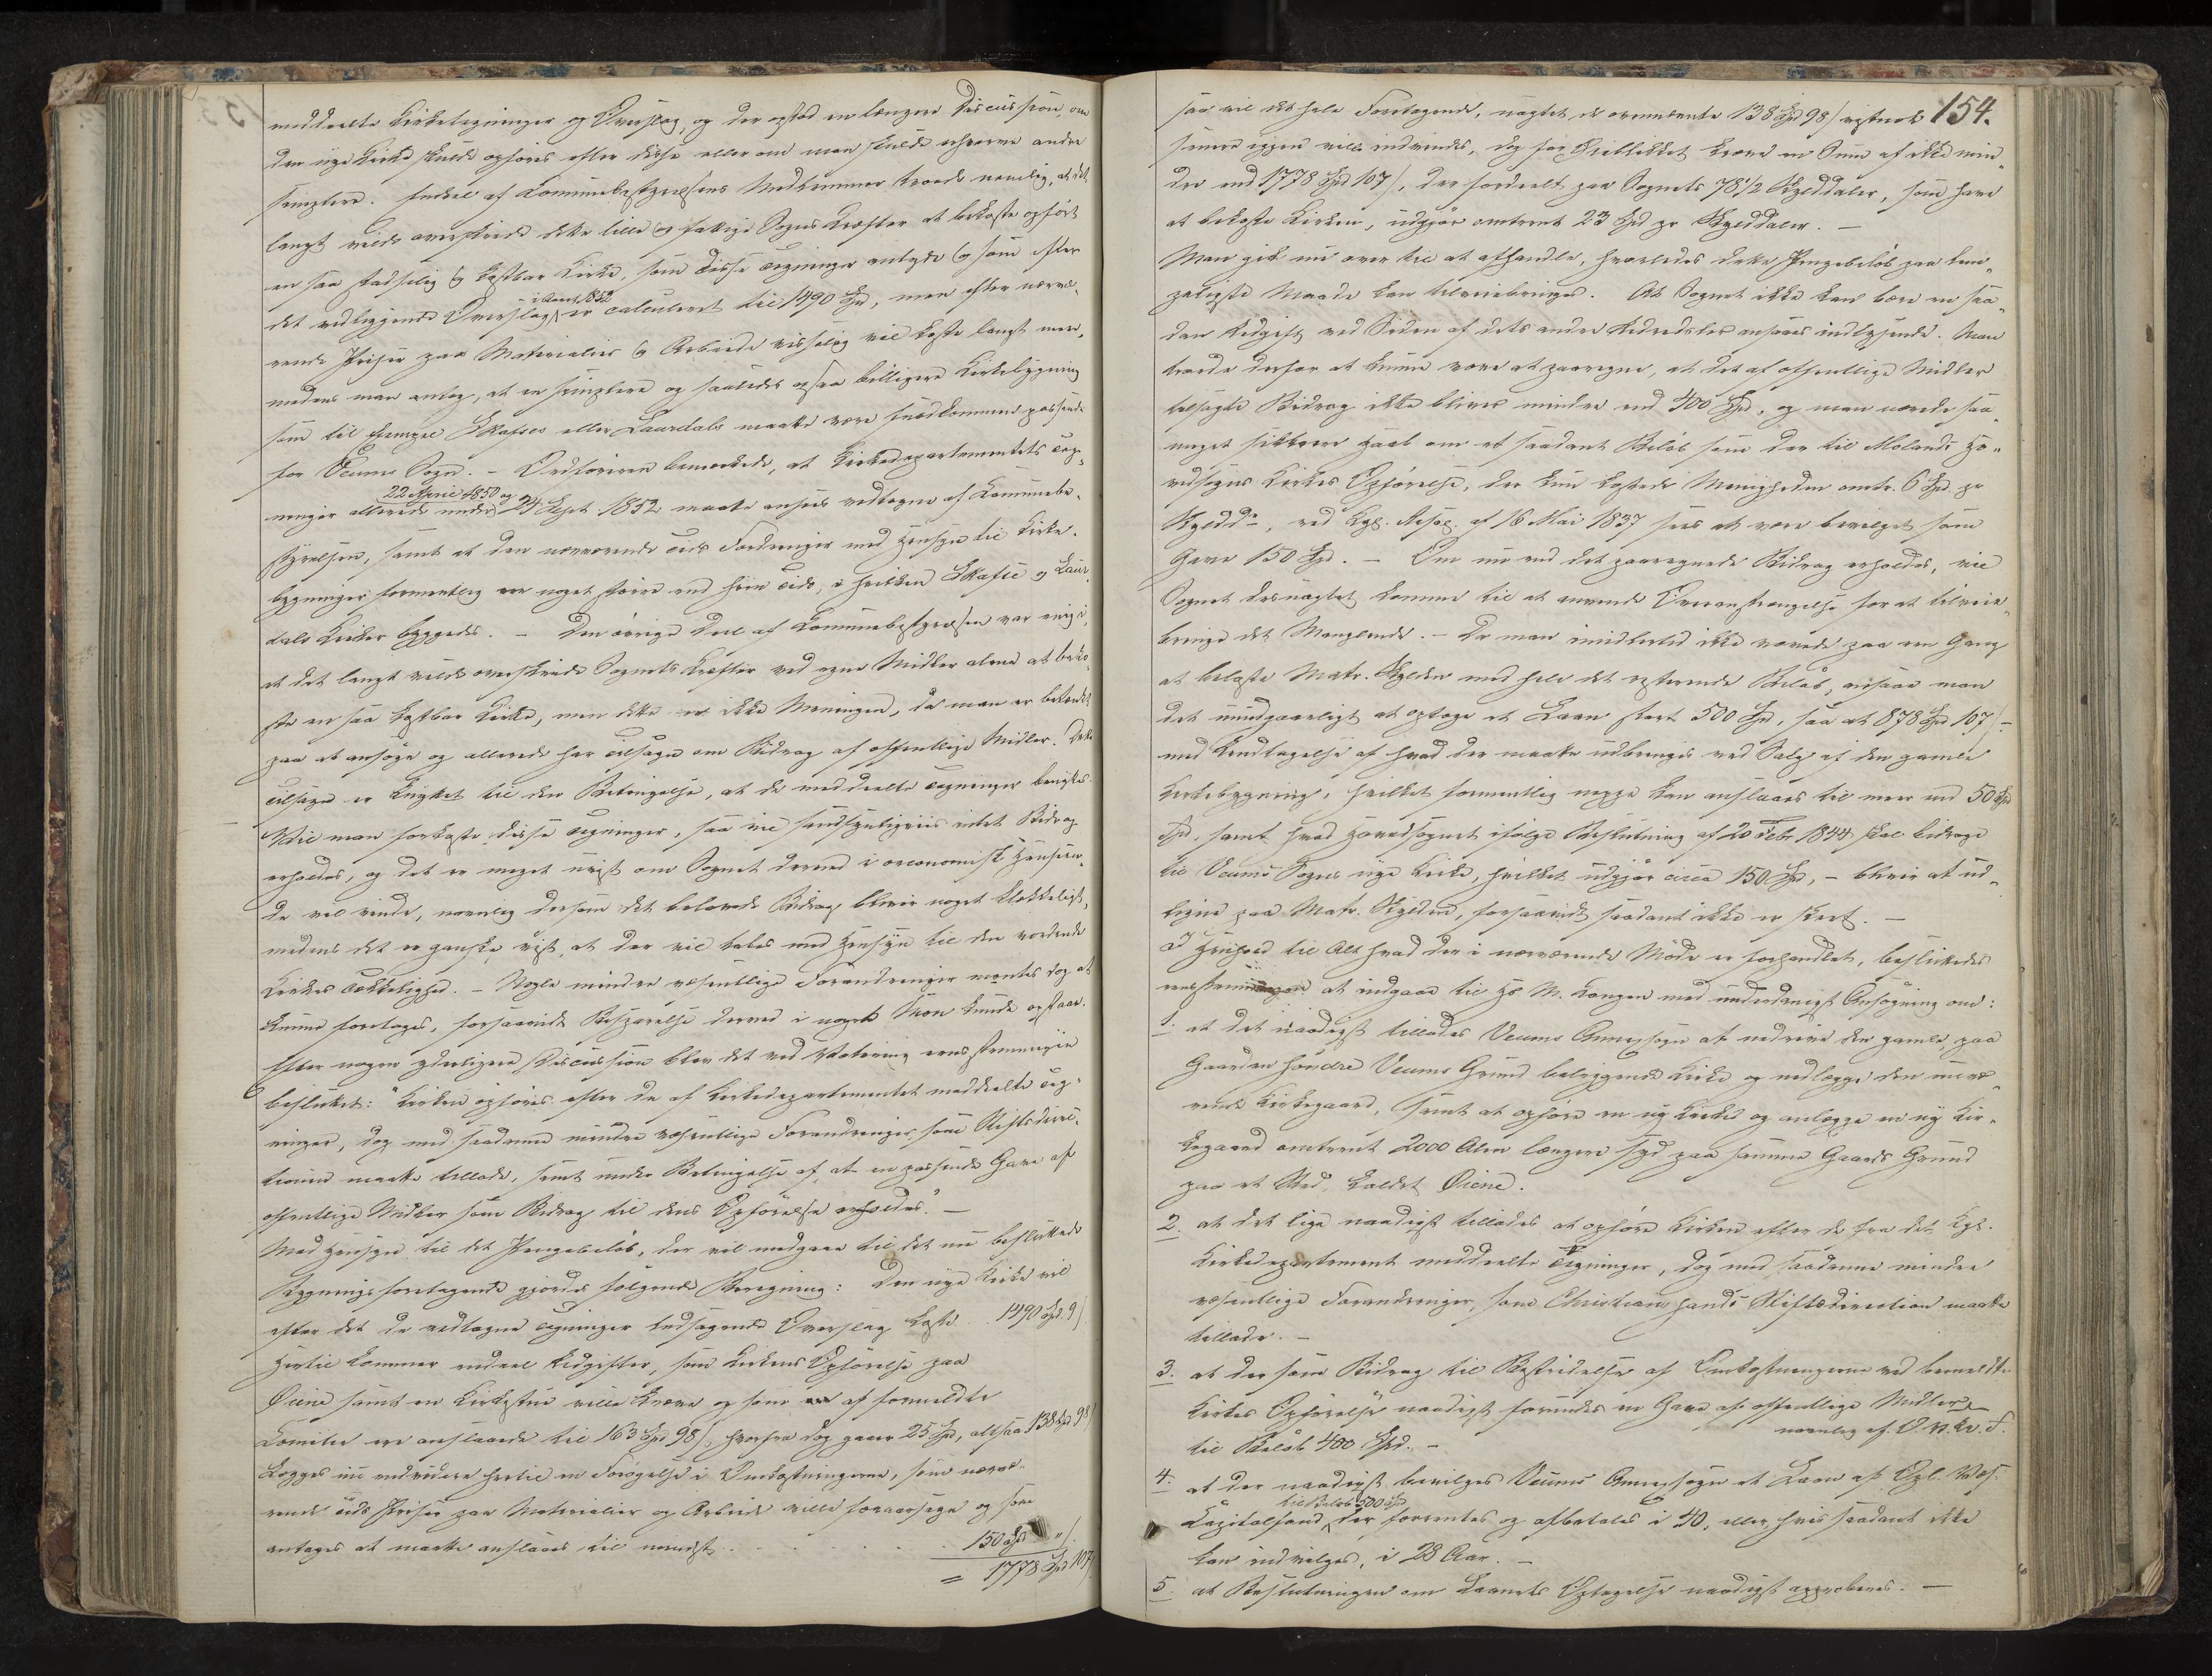 meddeelte Kirketegninger og Overslag, og der opstod en længere Discussion, om
den nye Kirke skulde opføres efter disse eller om man skulde erhverve andre
simplere. Endeel af Communebestyrelsens Medlemmer troede nemlig, at det
langt vilde overskride dette lille og fattige Sogns Kræfter at bekoste opført
en saa stadselig og kostbar Kirke, som disse Tegninger antyde og som efter
det vedliggende Overslag i Aaret 1852 er calculeret til 1490 Spd, men efter nærvæ-
rende Priser paa Materialier og Arbeide visselig vil koste langt mere,
medens man antog, at en simplere og saaledes ogsaa billigere Kirkebygning
som til Exempel Skafses eller Laurdals maatte være fuldkommen passende
for Veums Sogn. – Ordføreren bemærkede, at Kirkedepartementets Teg-
ninger allerede under 22 April 1850 og 24 Sept. 1852 maatte ansees vedtagne af Communebe-
styrelsen, samt at den nærværende Tids Fordringer med Hensyn til Kirke-
bygninger formentlig er noget større end hiin Tids, i hvilken Skafse og Laur-
dals Kirker byggedes. – Den øvrige Deel af Communebestyrelsen var enig i,
at det langt vilde overskride Sognets Kræfter ved egne Midler alene at beko-
ste en saa kostbar Kirke, men dette er ikke Meningen, da man er betænkt
paa at ansøge og allerede har Tilsagn om Bidrag af offentlige Midler. Dette
Tilsagn er knyttet til den Betingelse, at de meddeelte Tegninger benyttes.
Vil man forkaste disse Tegninger, saa vil sandsynligviis intet Bidrag
erholdes, og det er meget uvist om Sognet derved i oeconomisk Henseen-
de vil vinde, navnlig dersom det belovede Bidrag bliver noget klækkeligt,
medens det er ganske vist, at der vil tabes med Hensyn til den vordende
Kirkes Tækkelighed. – Nogle mindre væsentlige Forandringer mentes dog at
kunne foretages, forsaavidt Besparelse derved i noget Mon kunde opstaae.
Efter nogen yderligere Discussion blev det ved Votering eenstemmigen
besluttet: "Kirken opføres efter de af Kirkedepartementet meddeelte Teg-
ninger, dog med saadanne mindre væsentlige Forandringer, som Stiftsdirec-
tionen maatte tillade, samt under Betingelse af, at en passende Gave af
offentlige Midler som Bidrag til dens Opførelse erholdes." –
Med Hensyn til det Pengebeløb, der vil medgaae til det nu besluttede
Bygningsforetagende gjordes følgende Beregning: Den nye Kirke vil
efter det de vedtagne Tegninger ledsagende Overslag koste . 1490 Spd. 9 ſ.
Hertil kommer endeel Udgifter, som Kirkens Opførelse paa
Øiene samt en Kirkestue ville kræve og som af formeldte
Comitee ere anslaaede til 163 Spd 98 ſ, hvorfra dog gaaer 25 Spd, altsaa 138 Spd 98 ſ
Lægges nu endvidere hertil en Forøgelse i Omkostningerne, som nærvæ-
rende Tids Priser paa Materialier og Arbeide ville foraarsage og som
antages at maatte anslaaes til mindst . . . . . . . 150 Spd " ſ.
= 1778 Spd 107 ſ
154.
saa vil det hele Foretagende, uagtet de ovennævnte 138 Spd 98 ſ vistnok
senere igjen ville indvindes, dog for Øieblikket kræve en Sum af ikke min-
dre end 1778 Spd 107 ſ, der fordeelt paa Sognets 78 1/2 Skylddaler, som have
at bekoste Kirken, udgjør omtrent 23 Spd pr Skylddaler. –
Man gik nu over til at afhandle, hvorledes dette Pengebeløb paa læm-
peligste Maade kan tilveiebringes. At Sognet ikke kan bære en saa-
dan Udgift ved Siden af dets andre Udredsler ansees indlysende. Man
troede derfor at kunne være at paaregne, at det af offentlige Midler
tilsagte Bidrag ikke bliver mindre end 400 Spd, og man nærede saa
meget sikkrere Haab om et saadant Beløb som der til Molands Ho-
vedsogns Kirkes Opførelse, der kun kostede Menigheden omtr. 6 Spd. pr
Skyldd., ved Kgl. Resol. af 16 Mai 1837 sees at være bevilget som
Gave 150 Spd. – Om nu end det paaregnede Bidrag erholdes, vil
Sognet desuagtet komme til at anvende Overanstrengelse for at tilveie-
bringe det Manglende. – Da man imidlertid ikke vovede paa een Gang
at belaste Matr. Skylden med hele det resterende Beløb, ansaae man
det uundgaaeligt at optage et Laan stort 500 Spd, saa at 878 Spd 107 ſ –
med Undtagelse af hvad der maatte indbringes ved Salg af den gamle
Kirkebygning, hvilket formentlig neppe kan anslaaes til meer end 50 Spd
Spd, samt hvad Hovedsognet ifølge Beslutning af 20 Febr. 1844 skal bidrage
til Veums Sogns nye Kirke, hvilket udgjør circa 150 Spd, – bliver at ud-
ligne paa Matr. Skylden, forsaavidt saadant ikke er skeet. –
I Henhold til Alt hvad der i nærværende Møde er forhandlet, besluttedes
eenstemmigen at indgaae til Hs. M. Kongen med underdanigst Ansøgning om:
1. at det naadigst tillades Veums Annexsogn at nedrive den gamle, paa
Gaarden søndre Veums Grund beliggende Kirke og nedlægge den nuvæ-
rende Kirkegaard, samt at opføre en ny Kirke og anlægge en ny Kir-
kegaard omtrent 2000 Alen længere syd paa samme Gaards Grund
paa et Sted, kaldet Øiene.
2. at det lige naadigst tillades at opføre Kirken efter de fra det Kgl.
Kirkedepartement meddeelte Tegninger, dog med saadanne mindre
væsentlige Forandringer, som Christiansands Stiftsdirection maatte
tillade. –
3. at der som Bidrag til Bestridelse af Omkostningerne ved bemeldte
Kirkes Opførelse naadigst forundes en Gave af offentlige Midler,
navnlig af O. V. K. F.
til Beløb 400 Spd. –
4. at der naadigst bevilges Veums Annexsogn et Laan af Opl. Væs.
Capitalfond til Beløb 500 Spd der forrentes og afbetales i 40, eller hvis saadant ikke
kan indvilges, i 28 Aar. –
5. at Beslutningen om Laanets Optagelse naadigst approberes. –